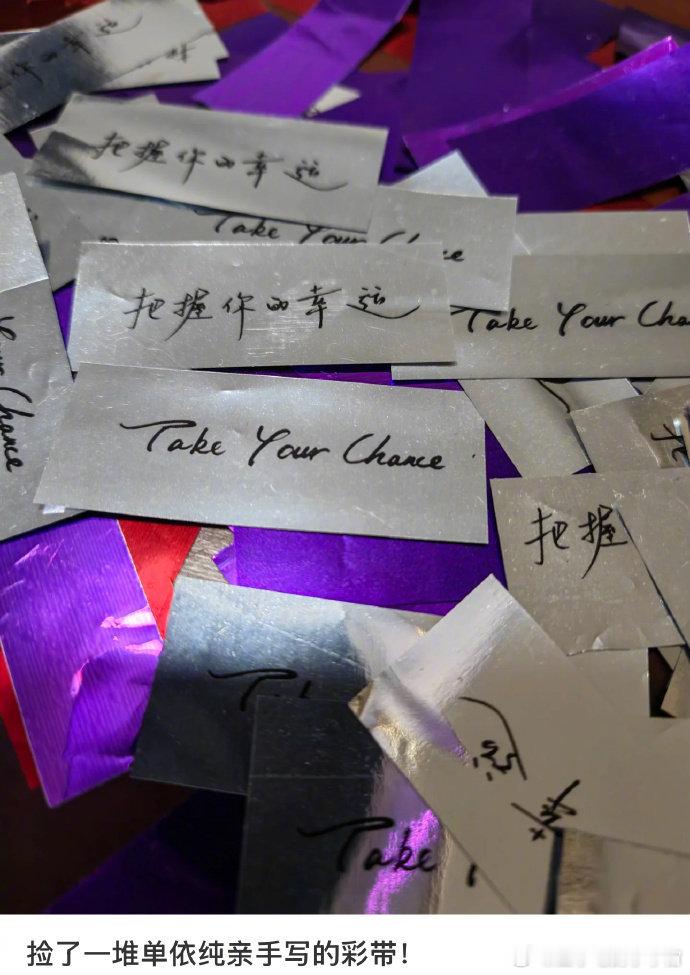 把握你的幸运
Take Your Chance
把握你的幸运
Take Your Cha
Your Chance
Take Your Chance
把握
Take
捡了一堆单依纯亲手写的彩带!